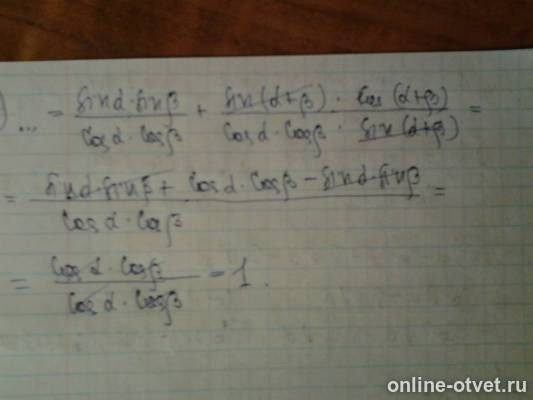 ) ... = sinα·sinβ / cosα·cosβ + sin(α+β)·cos(α+β) / cosα·cosβ·sin(α+β) =
= sinα·sinβ + cosα·cosβ - sinα·sinβ / cosα·cosβ =
= cosα·cosβ / cosα·cosβ = 1.
online-otvet.ru